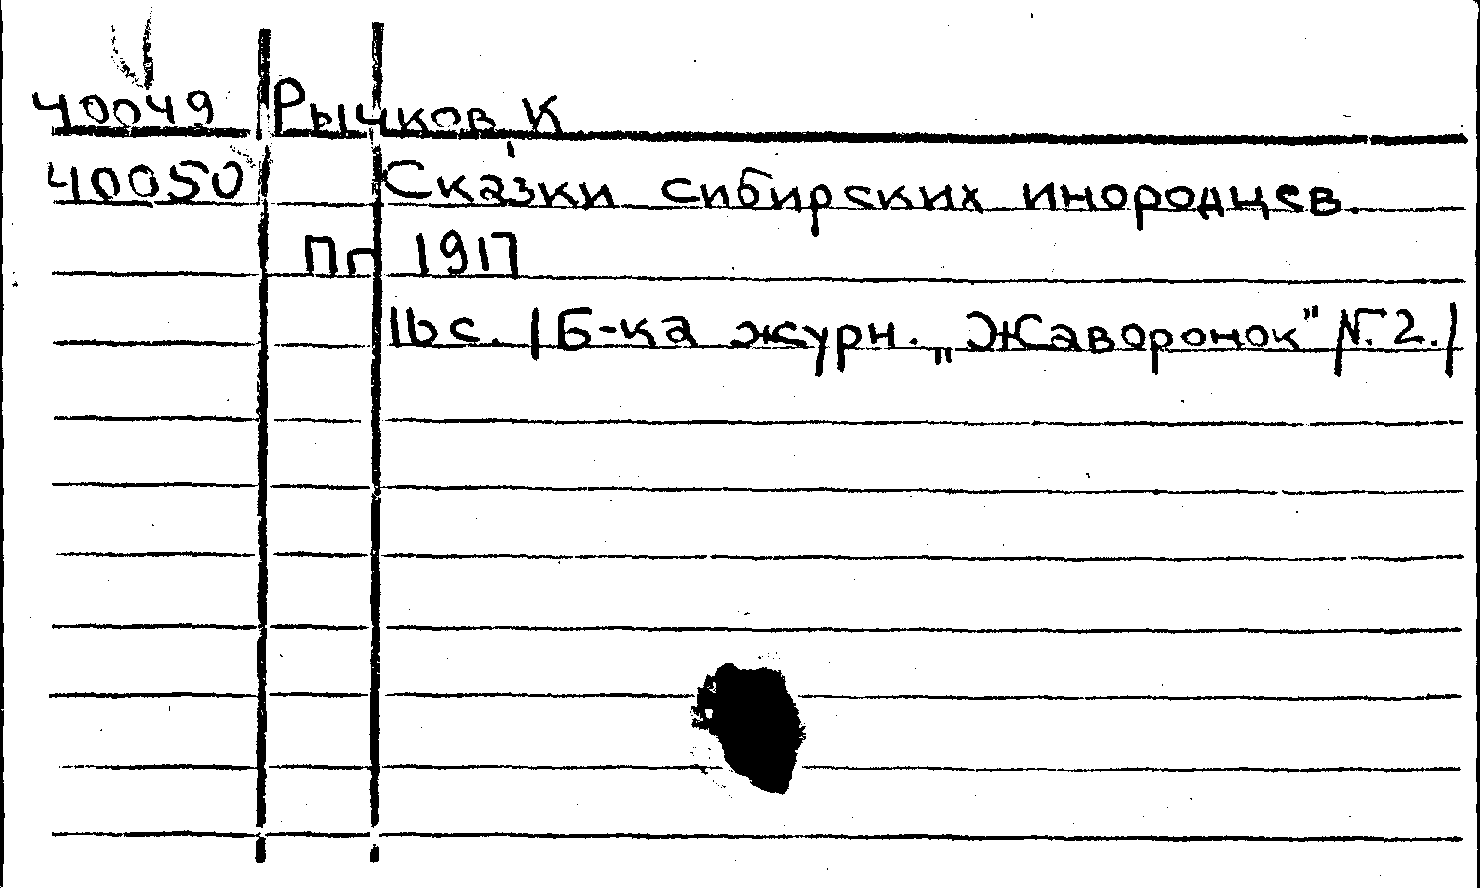 40049 Рычков, К
40050 Сказки сибирских инородцев.
Пг 1917
16 с. /Б-ка журн. „Жаворонок" №2./